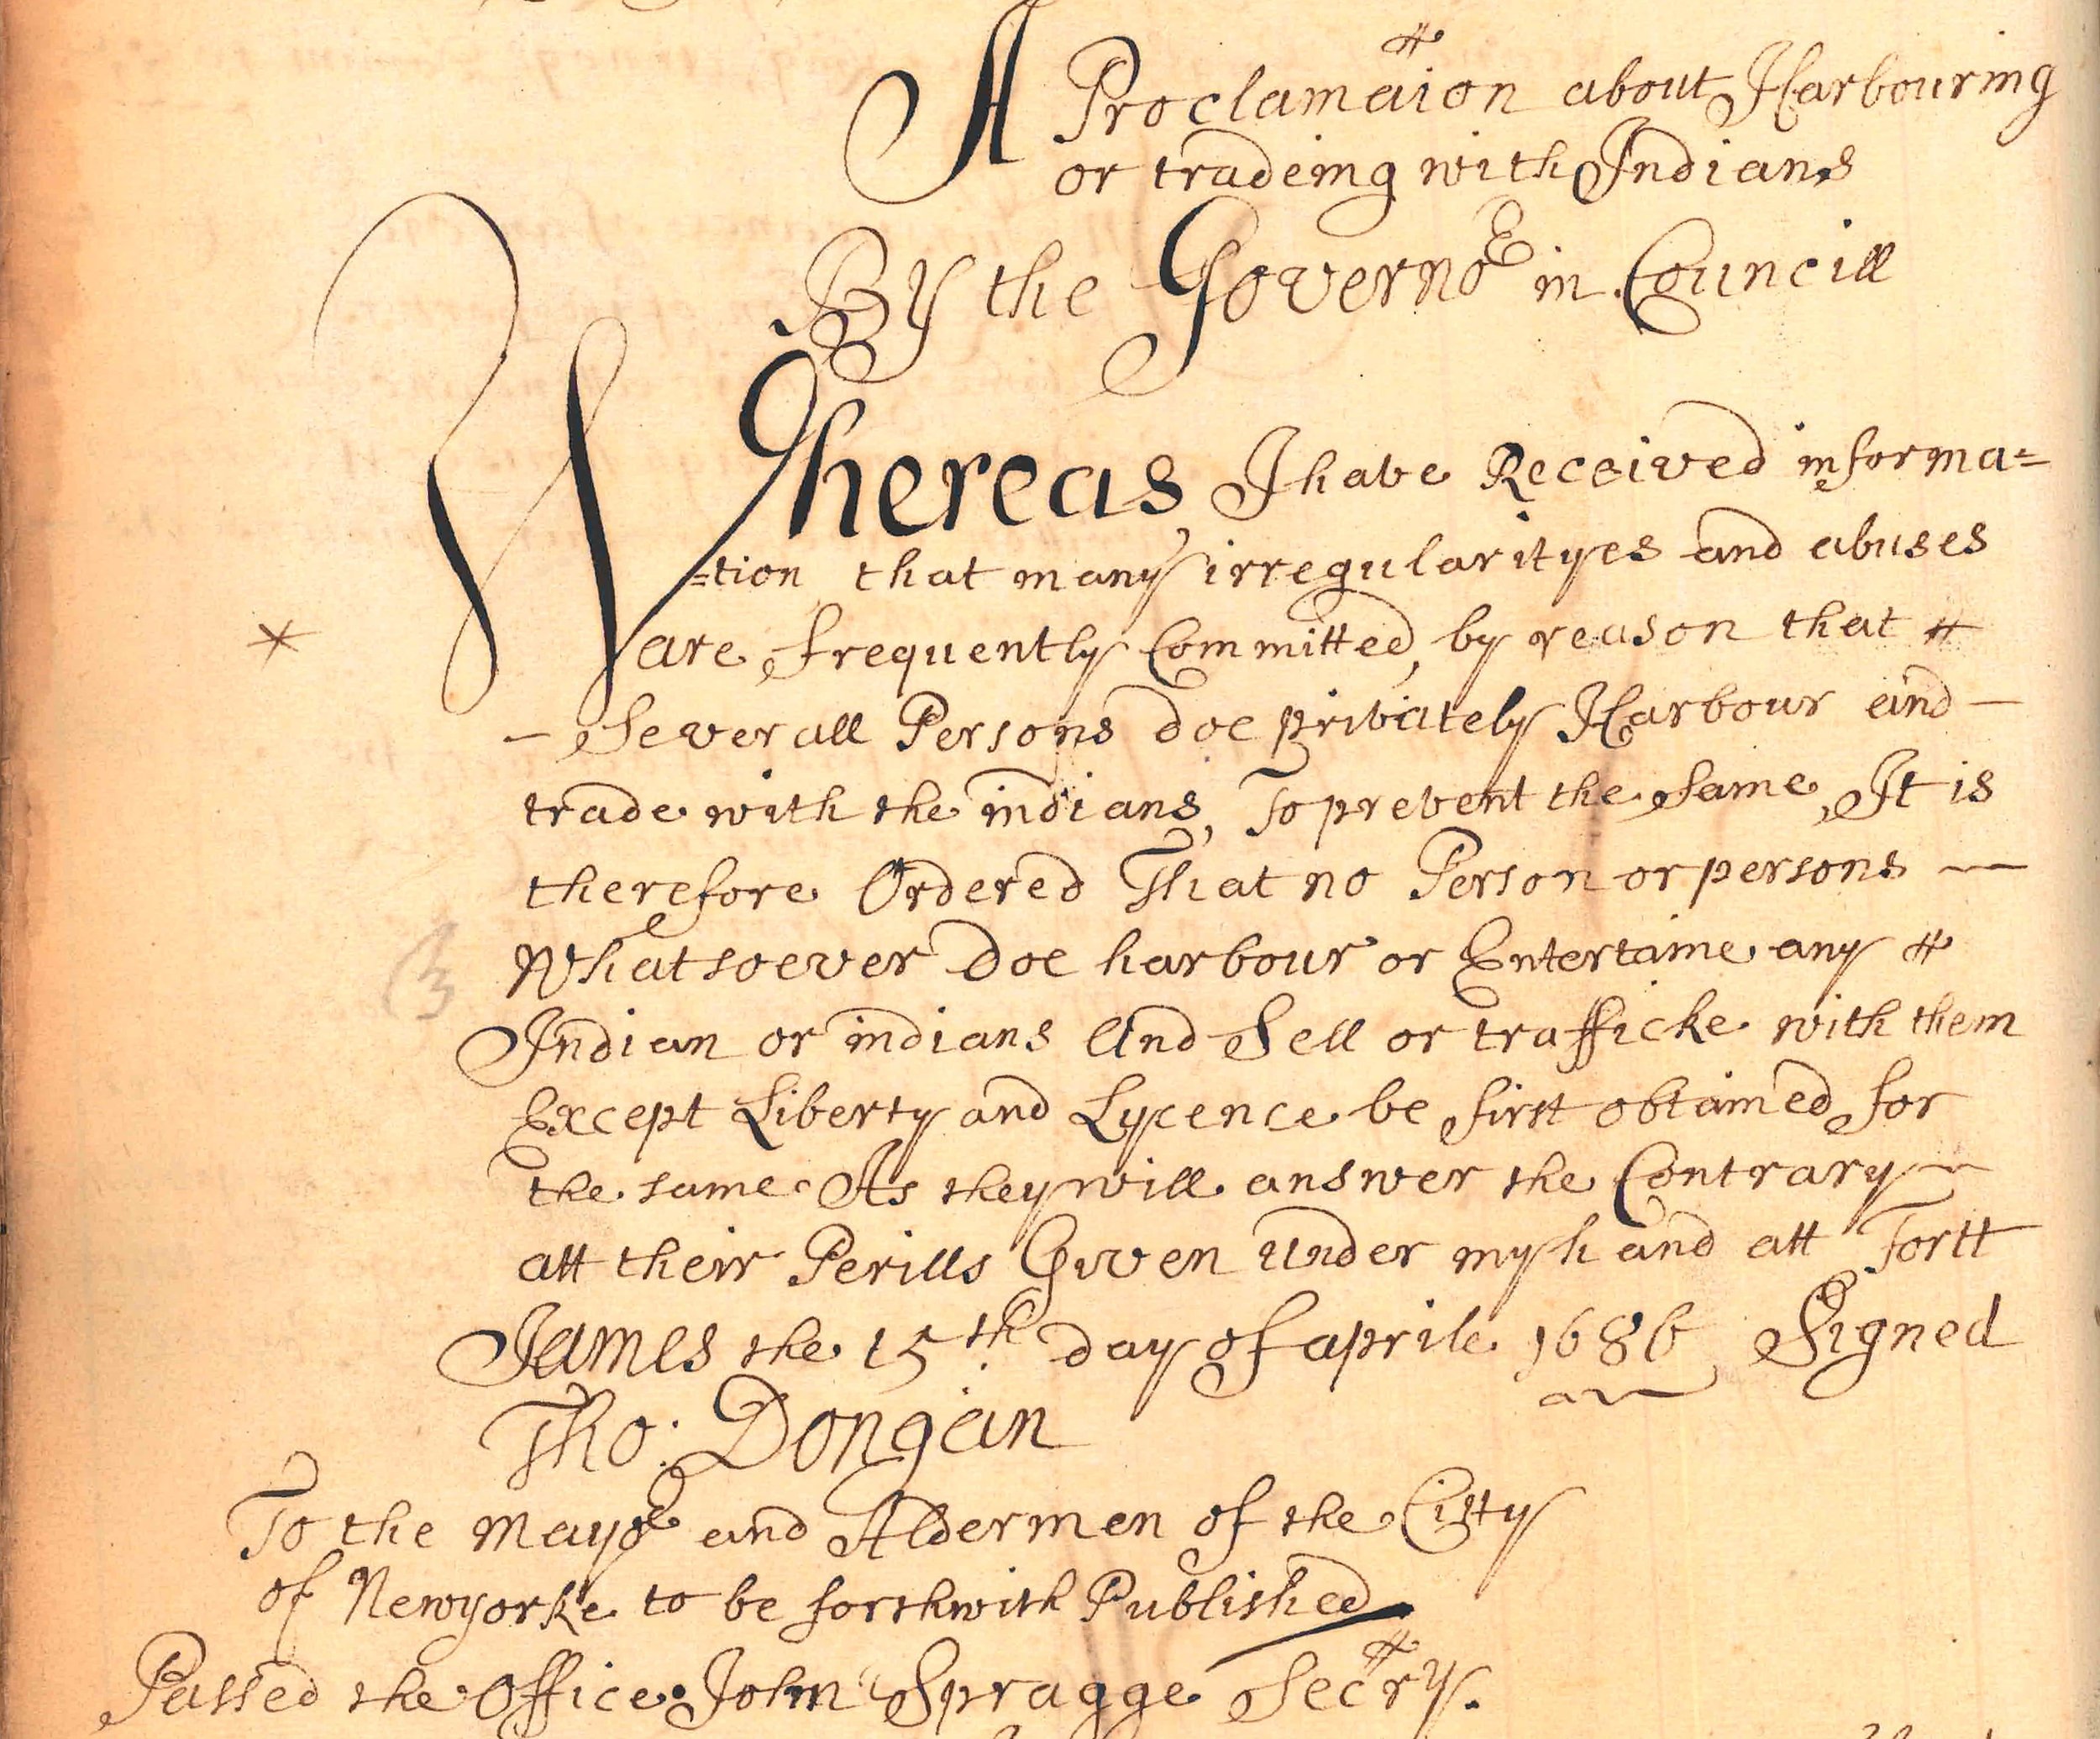 A Proclamaion about Harbouring
or tradeing with Indians
By the Governor in Councill
Whereas I have Received informa=
=tion that many irregularityes and abuses
are frequently Committed, by reason that
– Severall Persons doe privately Harbour and –
trade with the indians, To prevent the same, It is
therefore Ordered That no Person or persons —
Whatsoever Doe harbour or Entertaine any
Indian or indians And Sell or trafficke with them
Except Liberty and Lycence be first obtained for
the same As they will answer the Contrary ~
att their Perills Given under my hand att Fortt
James the 15th day of aprile 1686 Signed
Tho: Dongan
To the Mayor and Aldermen of the Citty
of Newyorke to be forthwith Published
Passed the Office John Spragge Secry.